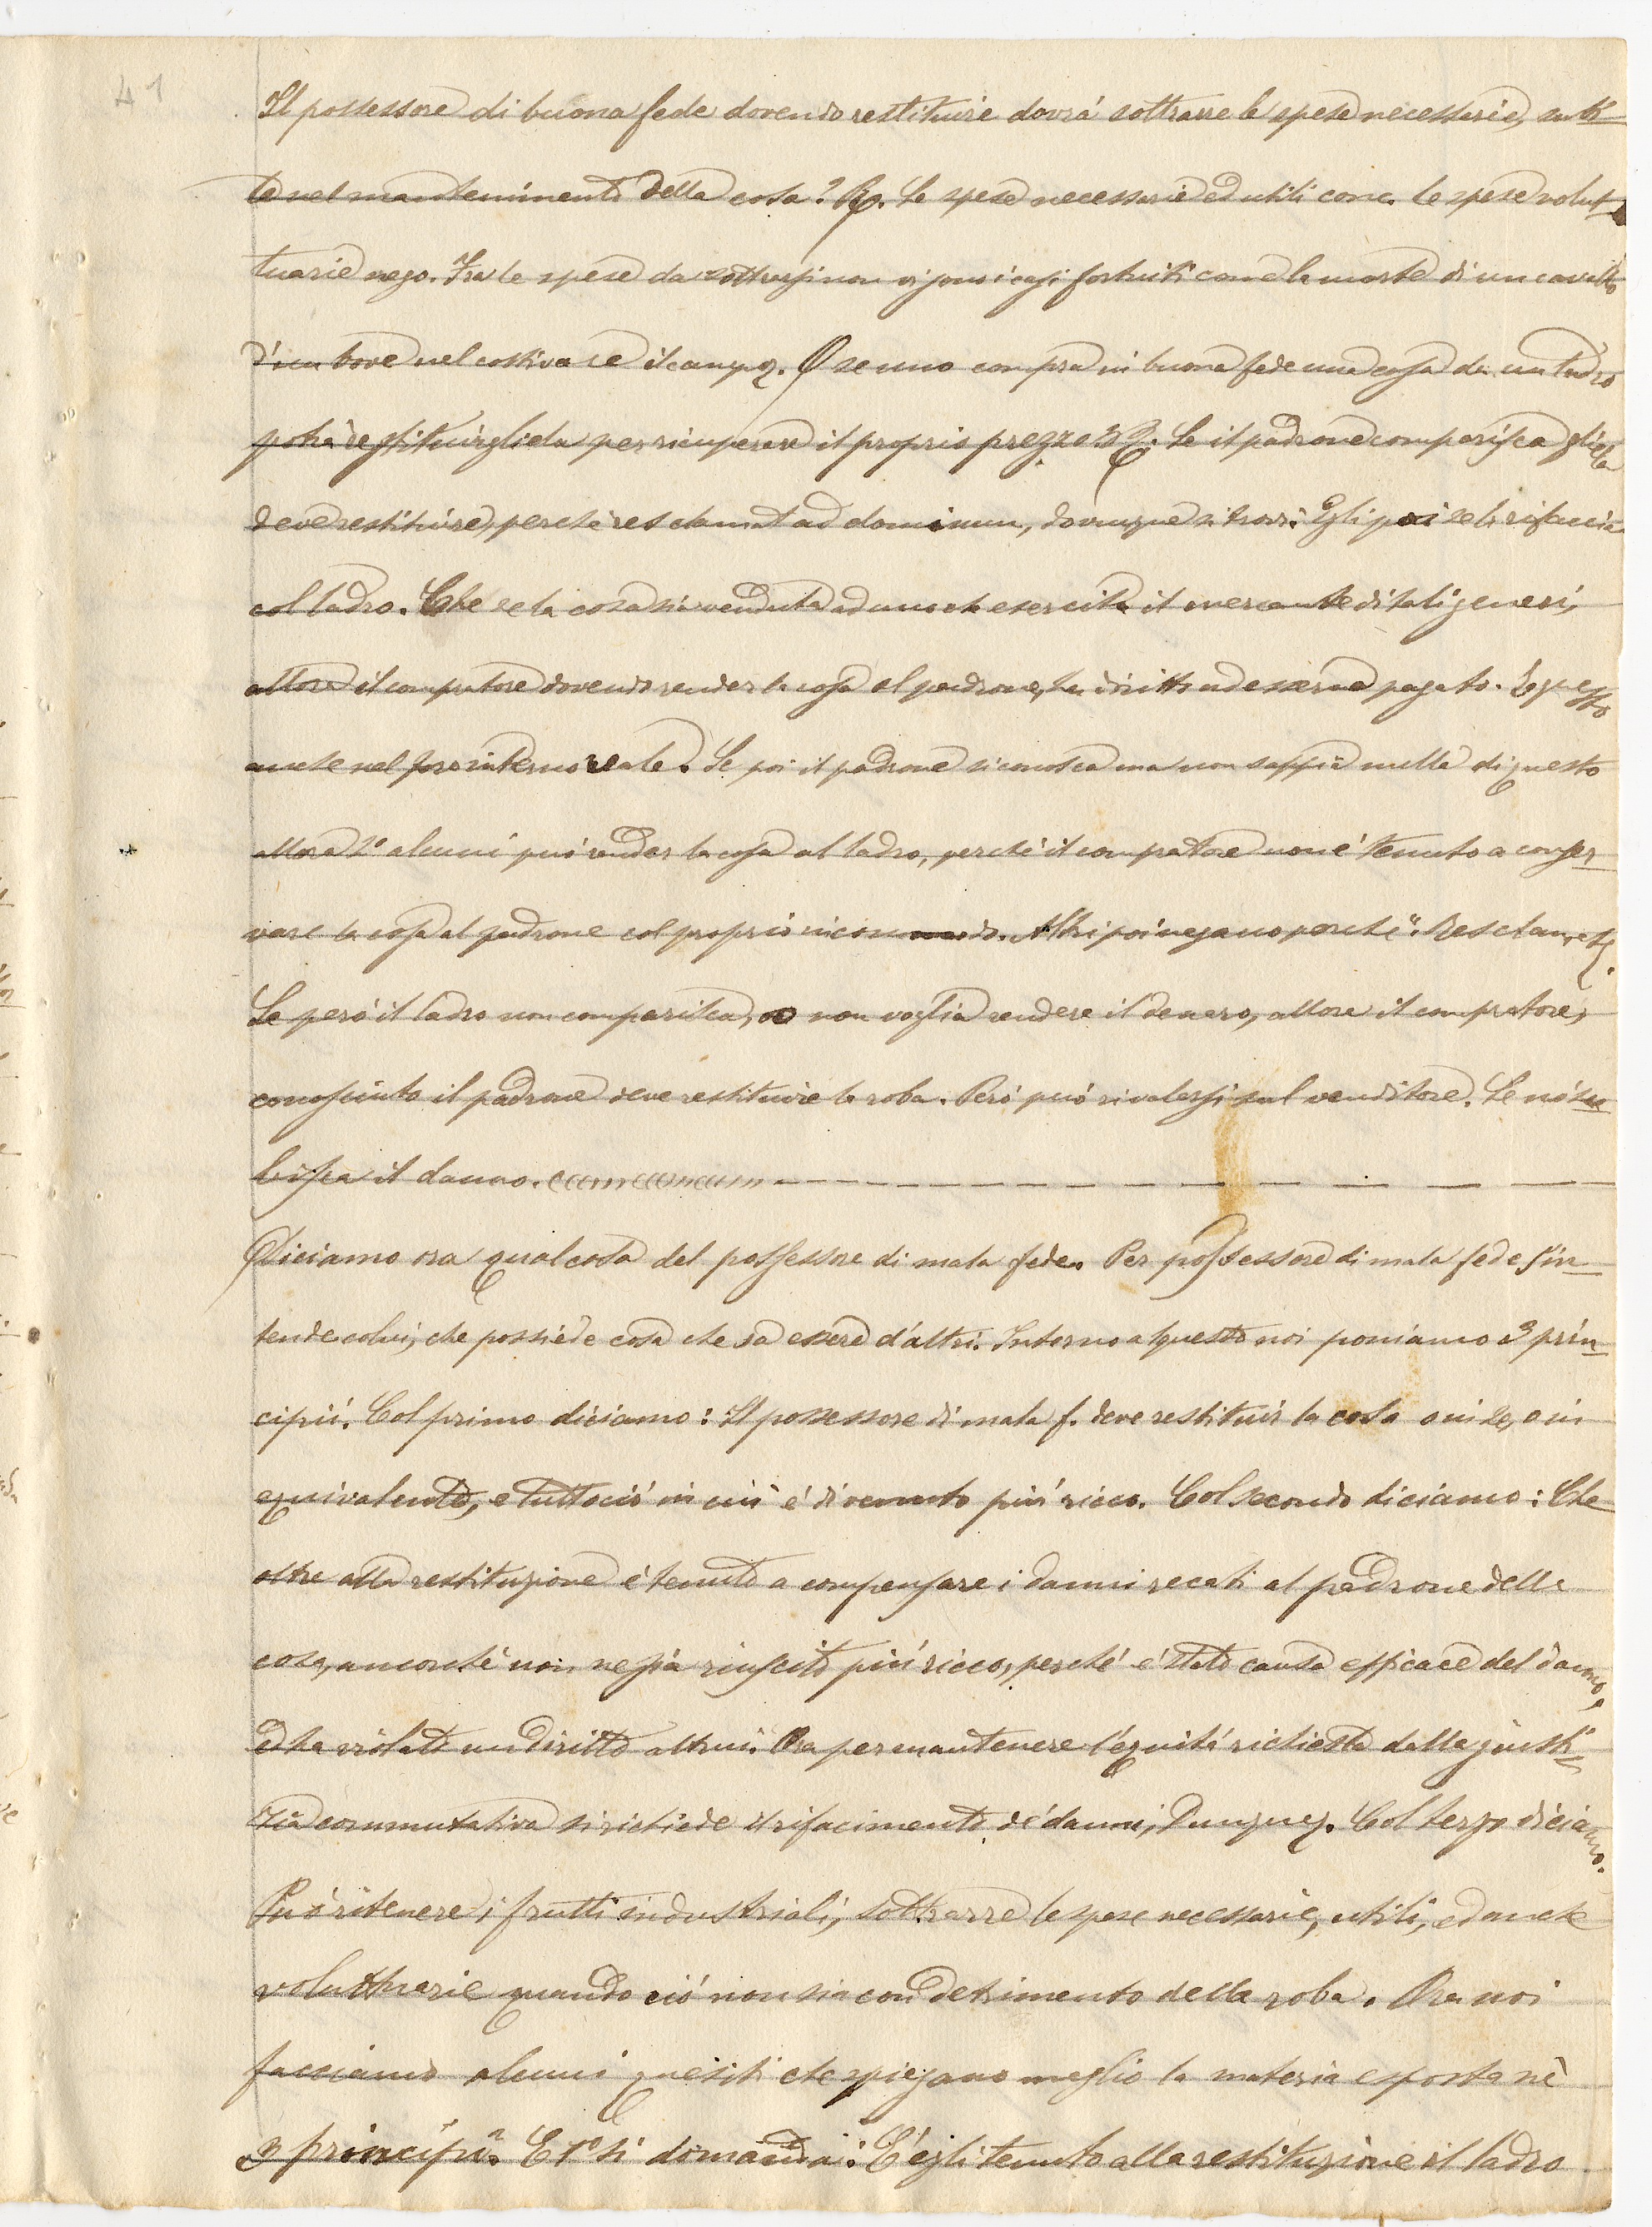 41
Il possessore di buona fede dovendo restituire dovrá sottrarre le spese necessarie, subi-
te nel mantenimento della cosa? R. Le spese necessarie ed utili conc. le spese volut-
tuarie nego. Fra le spese da sottrarsi non vi sono i casi fortuiti come la morte di un cavallo
d'un bove nel coltivare il campo. Q se uno compra in buona fede una cosa da un ladro
potrà restituirgliela per ricuperare il proprio prezzo? R. Se il padrone comparisca gliela
deve restituire, perché res clamat ad dominum, dovunque si trovi. Egli poi se la rifaccia
col ladro. Che se la cosa sia venduta ad uno che esercita il mercante di tali generi,
allora il compratore dovendo render la cosa al padrone, ha diritto ad esserne pagato. E questo
anche nel foro interno vale. Se poi il padrone si conosca ma non sappia nulla di questo
allora 2º alcuni può render la cosa al ladro, perché il compratore non é tenuto a conser-
vare la cosa al padrone col proprio incommodo. Altri poi negano perché: Res clam. etc.
Se peró il ladro non comparisca, o non voglia rendere il denaro, allora il compratore,
conosciuto il padrone deve restituire la roba. Peró puó rivalersi sul venditore. Se nó su-
bisca il danno.
Diciamo ora qualcosa del possessore di mala fede. Per possessore di mala fede s'in-
tende colui, che possiede cosa che sa essere d'altri. Intorno a questo noi poniamo 3 prin-
cipii. Col primo diciamo: Il possessore di mala f. deve restituir la cosa o in se, o in
equivalente, e tuttociò in cui é divenuto piú ricco. Col secondo diciamo: Che
oltre alla restituzione é tenuto a compensare i danni recati al padrone della
cosa, ancorché non ne sia riuscito piú ricco, perché é stato causa efficace del danno,
ed ha violato un diritto altrui. Ora per mantenere l'equitá richiesta dalla giusti-
zia commutativa si richiede il rifacimento de' danni, Dunque. Col terzo diciamo.
Puó ritenere i frutti industriali, sottrarre le spese necessarie, utili, ed anche
voluttuarie quando ció non sia con detrimento della roba. Ora noi
facciamo alcuni quesiti che spiegano meglio la materia esposta nè
3 principii. E 1º si domanda: É egli tenuto alla restituzione il ladro